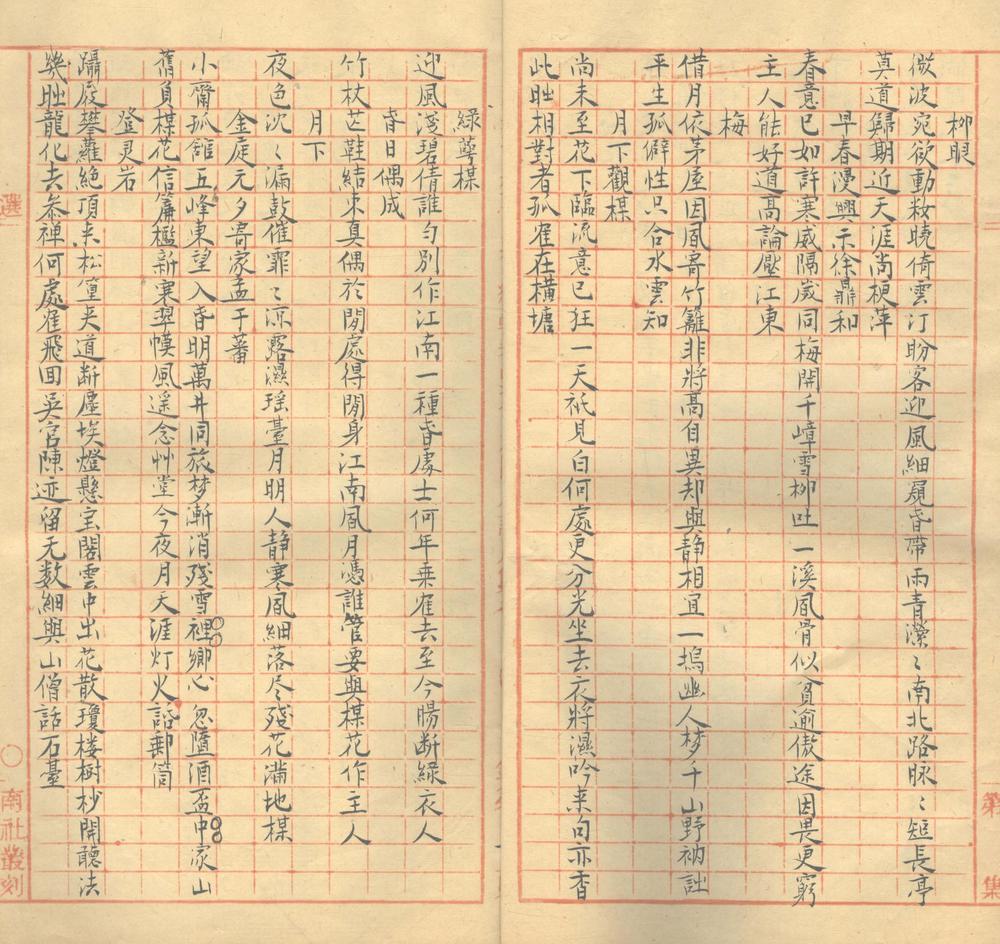 第 集
柳眼
微波宛欲動妝曉倚雲汀盼客迎風細窺香帶雨青濛〻南北路脉〻短長亭
莫道歸期近天涯尚梗萍
早春漫興示徐鼎和
春意已如許寒威隔嵗同梅開千嶂雪柳吐一溪風骨似貧逾傲途因畏更窮
主人能好道高論壓江東
梅
借月依茅屋因風寄竹籬非將高自異却與靜相宜一塢幽人梦千山野衲詩
平生孤僻性只合水雲知
月下觀楳
尚未至花下臨流意已狂一天祇見白何處更分光坐去衣將濕吟来句亦香
此時相對者孤隺在橫塘
綠萼楳
迎風淺碧倩誰勻別作江南一種香處士何年乗隺去至今腸断綠衣人
春日偶成
竹杖芒鞋結束真偶於閒處得閒身江南風月憑誰管要與楳花作主人
月下
夜色沈〻漏鼓催霏〻凉露濕瑶臺月明人靜寒風細落尽殘花滿地楳
金庭元夕寄家孟于蕃
小齋孤館五峰東望入昏明萬井同旅梦漸消殘雪裡鄉心忽墮酒盃中家山
舊負楳花信簾檻新寒翠幙風遥念艸堂今夜月天涯灯火話郵筒
登灵岩
躡屐攀蘿絕頂来松篁夹道断塵埃燈懸宝閣雲中出花散瓊楼樹杪開聽法
幾時龍化去叅禅何處隺飛回吳宮陳迹留无数細與山僧話石臺
選 南社叢刻